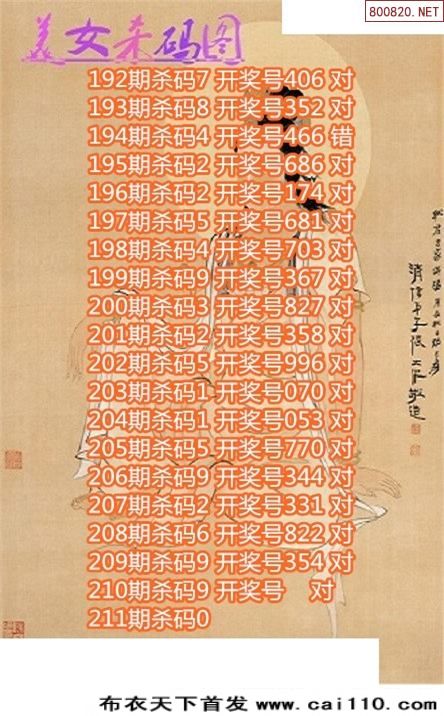 800820.NET
美女杀码图
192期杀码7 开奖号406 对
193期杀码8 开奖号352 对
194期杀码4 开奖号466 错
195期杀码2 开奖号686 对
196期杀码2 开奖号174 对
197期杀码5 开奖号681 对
198期杀码4 开奖号703 对
199期杀码9 开奖号367 对
200期杀码3 开奖号827 对
201期杀码2 开奖号358 对
202期杀码5 开奖号996 对
203期杀码1 开奖号070 对
204期杀码1 开奖号053 对
205期杀码5 开奖号770 对
206期杀码9 开奖号344 对
207期杀码2 开奖号331 对
208期杀码6 开奖号822 对
209期杀码9 开奖号354 对
210期杀码9 开奖号 对
211期杀码0
布衣天下首发 www.cai110.com